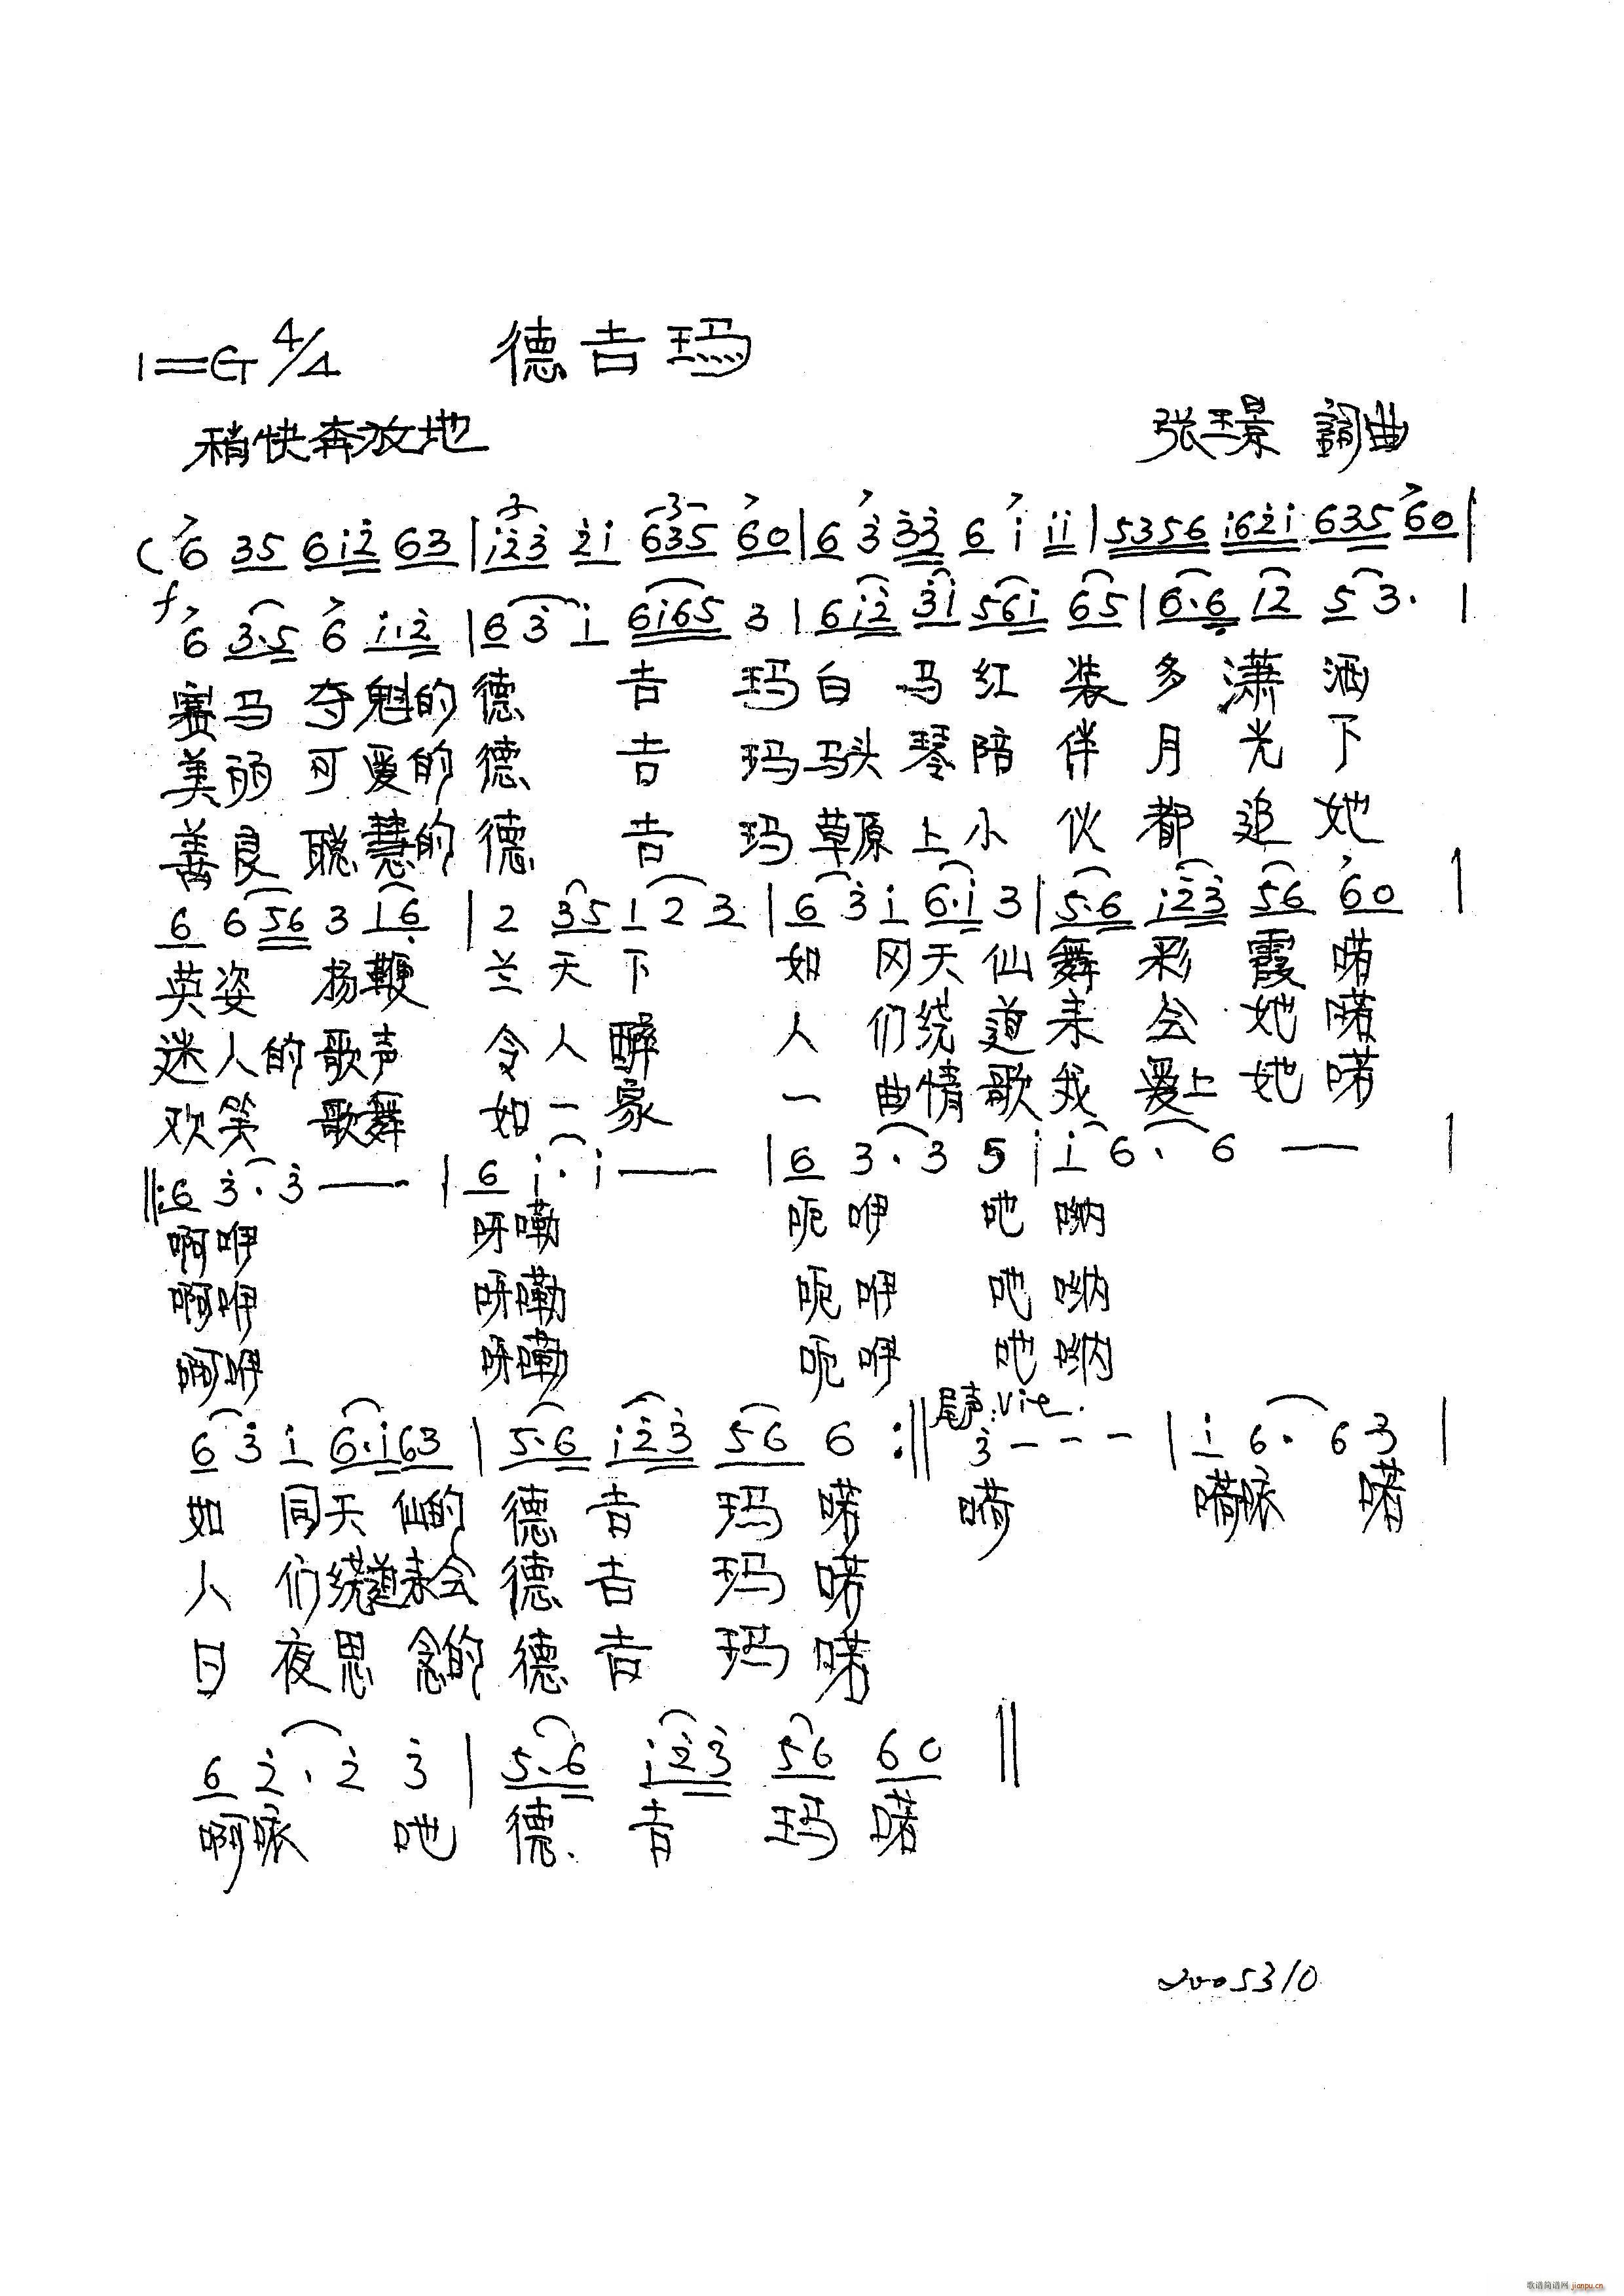 1=G 4/4 德吉玛
稍快奔放地 张玉景 詞曲
( 6 35 6i2 63 | i23 2i 635 60 | 6 3 33 6 i ii | 5356 i62i 635 60 |
f 6 3·5 6 i·2 | 6 3 i 6i65 3 | 6i2 3i 56i 65 | 6·6 i2 5 3· |
赛马夺魁的德吉玛白马红装多潇洒
美丽可爱的德吉玛马头琴陪伴月光下
善良聪慧的德吉玛草原上小伙都追她
6 6 56 3 16 | 2 35 1 2 3 | 6 3 i 6·i 3 | 5·6 i23 56 60 |
英姿扬鞭兰天下如冈天仙舞彩霞喏
迷人的歌声令人醉人们绕道来会她喏
欢笑歌舞如一家一曲情歌我爱上她喏
‖: 6 3·3 — | 6 i·i — | 6 3·3 5 | i 6·6 — |
啊咿呀嘞呃咿吔呦
啊咿呀嘞呃咿吔呦
啊咿呀嘞呃咿吔呦
6 3 i 6·i 63 | 5·6 i23 56 6 :‖ 尾声:Vit. 3 - - - | i 6·6 3 |
如同天仙的德吉玛喏嗬嗬咴喏
人们绕道来会德吉玛喏
日夜思念的德吉玛喏
6 2·2 3 | 5·6 i23 56 60 ‖
啊咴吔德吉玛喏
2005310
歌谱简谱网
jianpu.cn